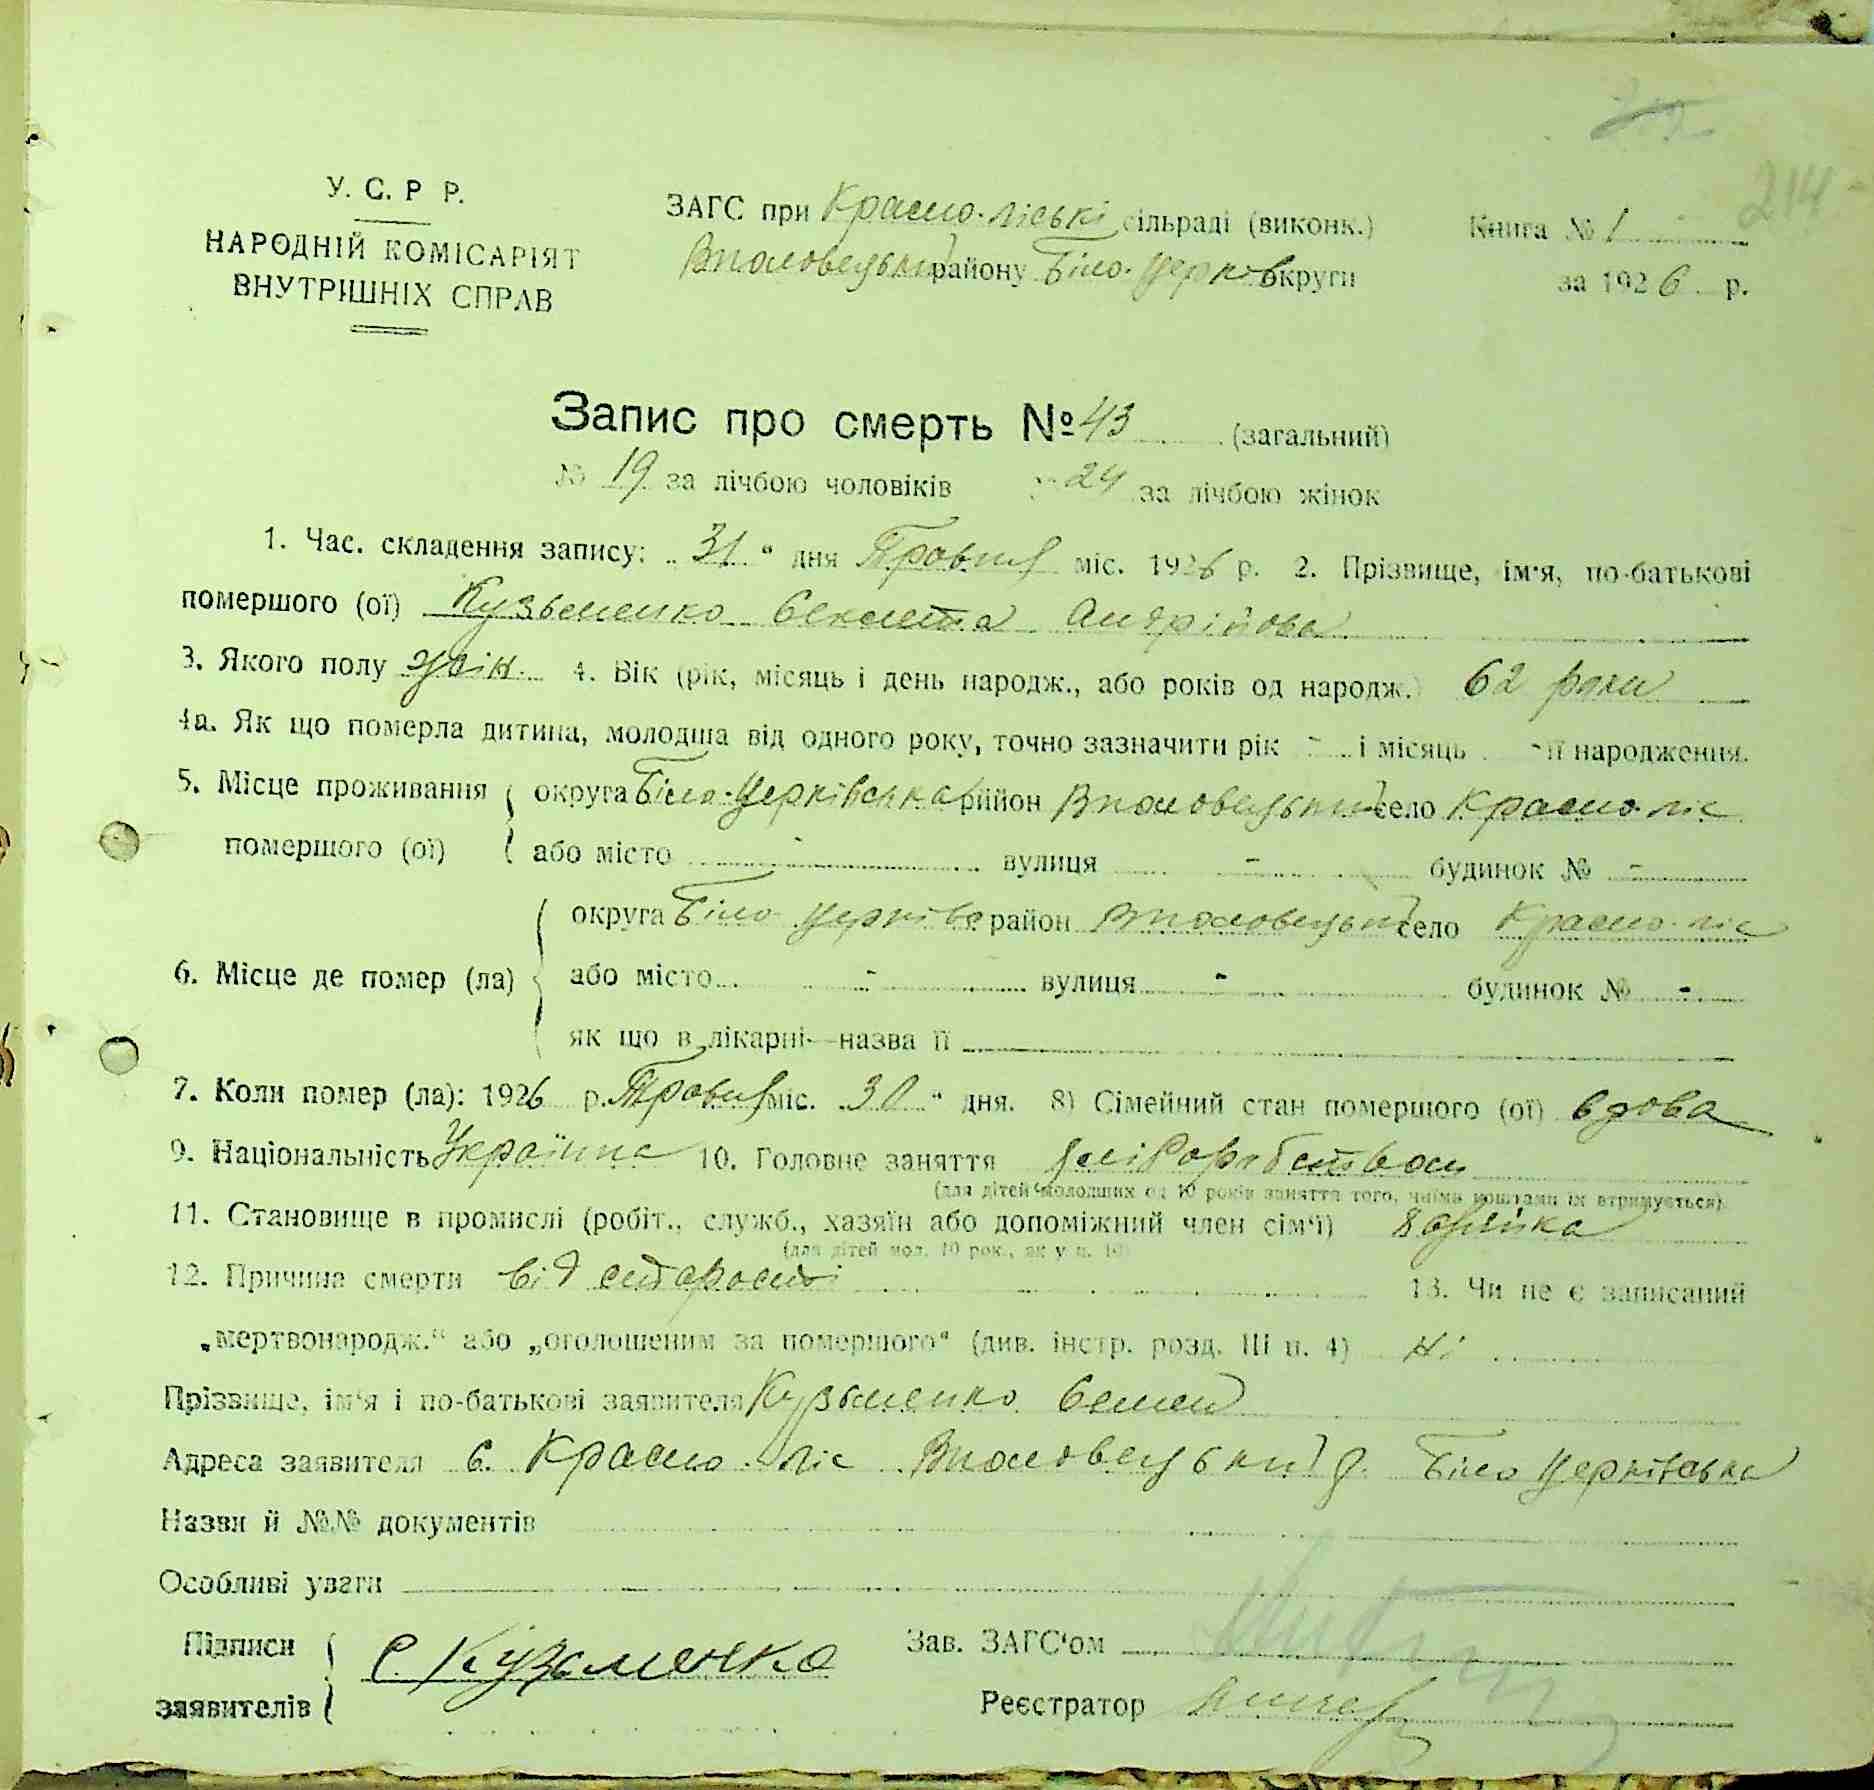 214
У. С. Р Р.
ЗАГС при Красно-ліські сільраді (виконк.) Книга № 1
НАРОДНІЙ КОМІСАРІЯТ
району Біло-Церків округи за 1926 р.
ВНУТРІШНІХ СПРАВ
Запис про смерть № 43 (загальний)
№ 19 за лічбою чоловіків 24 за лічбою жінок
1. Час. складення запису: „31“ дня Травня міс. 1926 р. 2. Прізвище, ім'я, по-батькові
помершого (ої) Кузьменко Андрійова
3. Якого полу жін. 4. Вік (рік, місяць і день народж., або років од народж.) 62 роки
4а. Як що померла дитина, молодша від одного року, точно зазначити рік - і місяць - її народження.
5. Місце проживання округа Біло-Церківська район село Красно-ліс
помершого (ої) або місто - вулиця - будинок № -
округа Біло Церків район село Красно-ліс
6. Місце де помер (ла) або місто - вулиця - будинок № -
як що в лікарні—назва її
7. Коли помер (ла): 1926 р. Травня міс. „30“ дня. 8) Сімейний стан помершого (ої) вдова
9. Національність Українка 10. Головне заняття
(для дітей молодших од 10 років заняття того, чиїма коштами їх втримується).
11. Становище в промислі (робіт., служб., хазяїн або допоміжний член сім'ї)
(для дітей мол. 10 рок., як у п. 10)
12. Причина смерти від старости 13. Чи не є записаний
„мертвонародж.“ або „оголошеним за помершого“ (див. інстр. розд. III п. 4) Ні
Прізвище, ім'я і по-батькові заявителя Кузьменко Семен
Адреса заявителя С. Красно-ліс р. Біло Церківська
Назви й №№ документів
Особливі уваги
Підписи С. Кузьменко Зав. ЗАГС'ом
заявителів Реєстратор